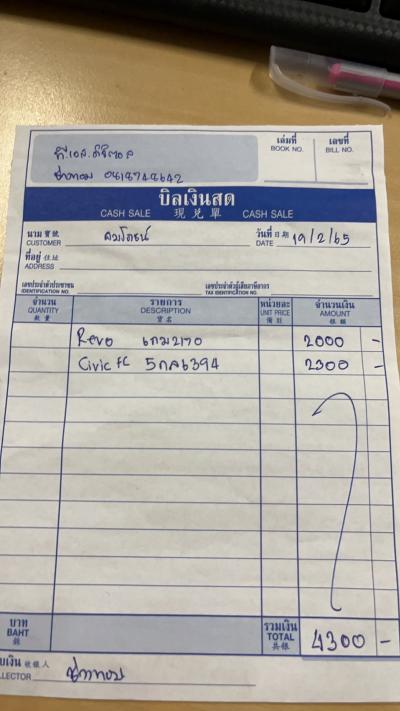 ที.เอส.ดิจิตอล
ช่างทอม 0818748642
เล่มที่ BOOK NO.
เลขที่ BILL NO.
บิลเงินสด
CASH SALE 現兌單 CASH SALE
นาม 寶號 CUSTOMER สมโภชน์
วันที่ 日期 DATE 19/2/65
ที่อยู่ 住址 ADDRESS
เลขประจำตัวประชาชน IDENTIFICATION NO.
เลขประจำตัวผู้เสียภาษีอากร TAX IDENTIFICATION NO.
จำนวน รายการ หน่วยละ จำนวนเงิน
QUANTITY DESCRIPTION UNIT PRICE AMOUNT
數量 貨名
Revo 6กม2170 2000 -
Civic FC 5กล6394 2300 -
บาท BAHT
รวมเงิน TOTAL 4300 -
บเงิน 收銀人
LLECTOR ช่างทอม